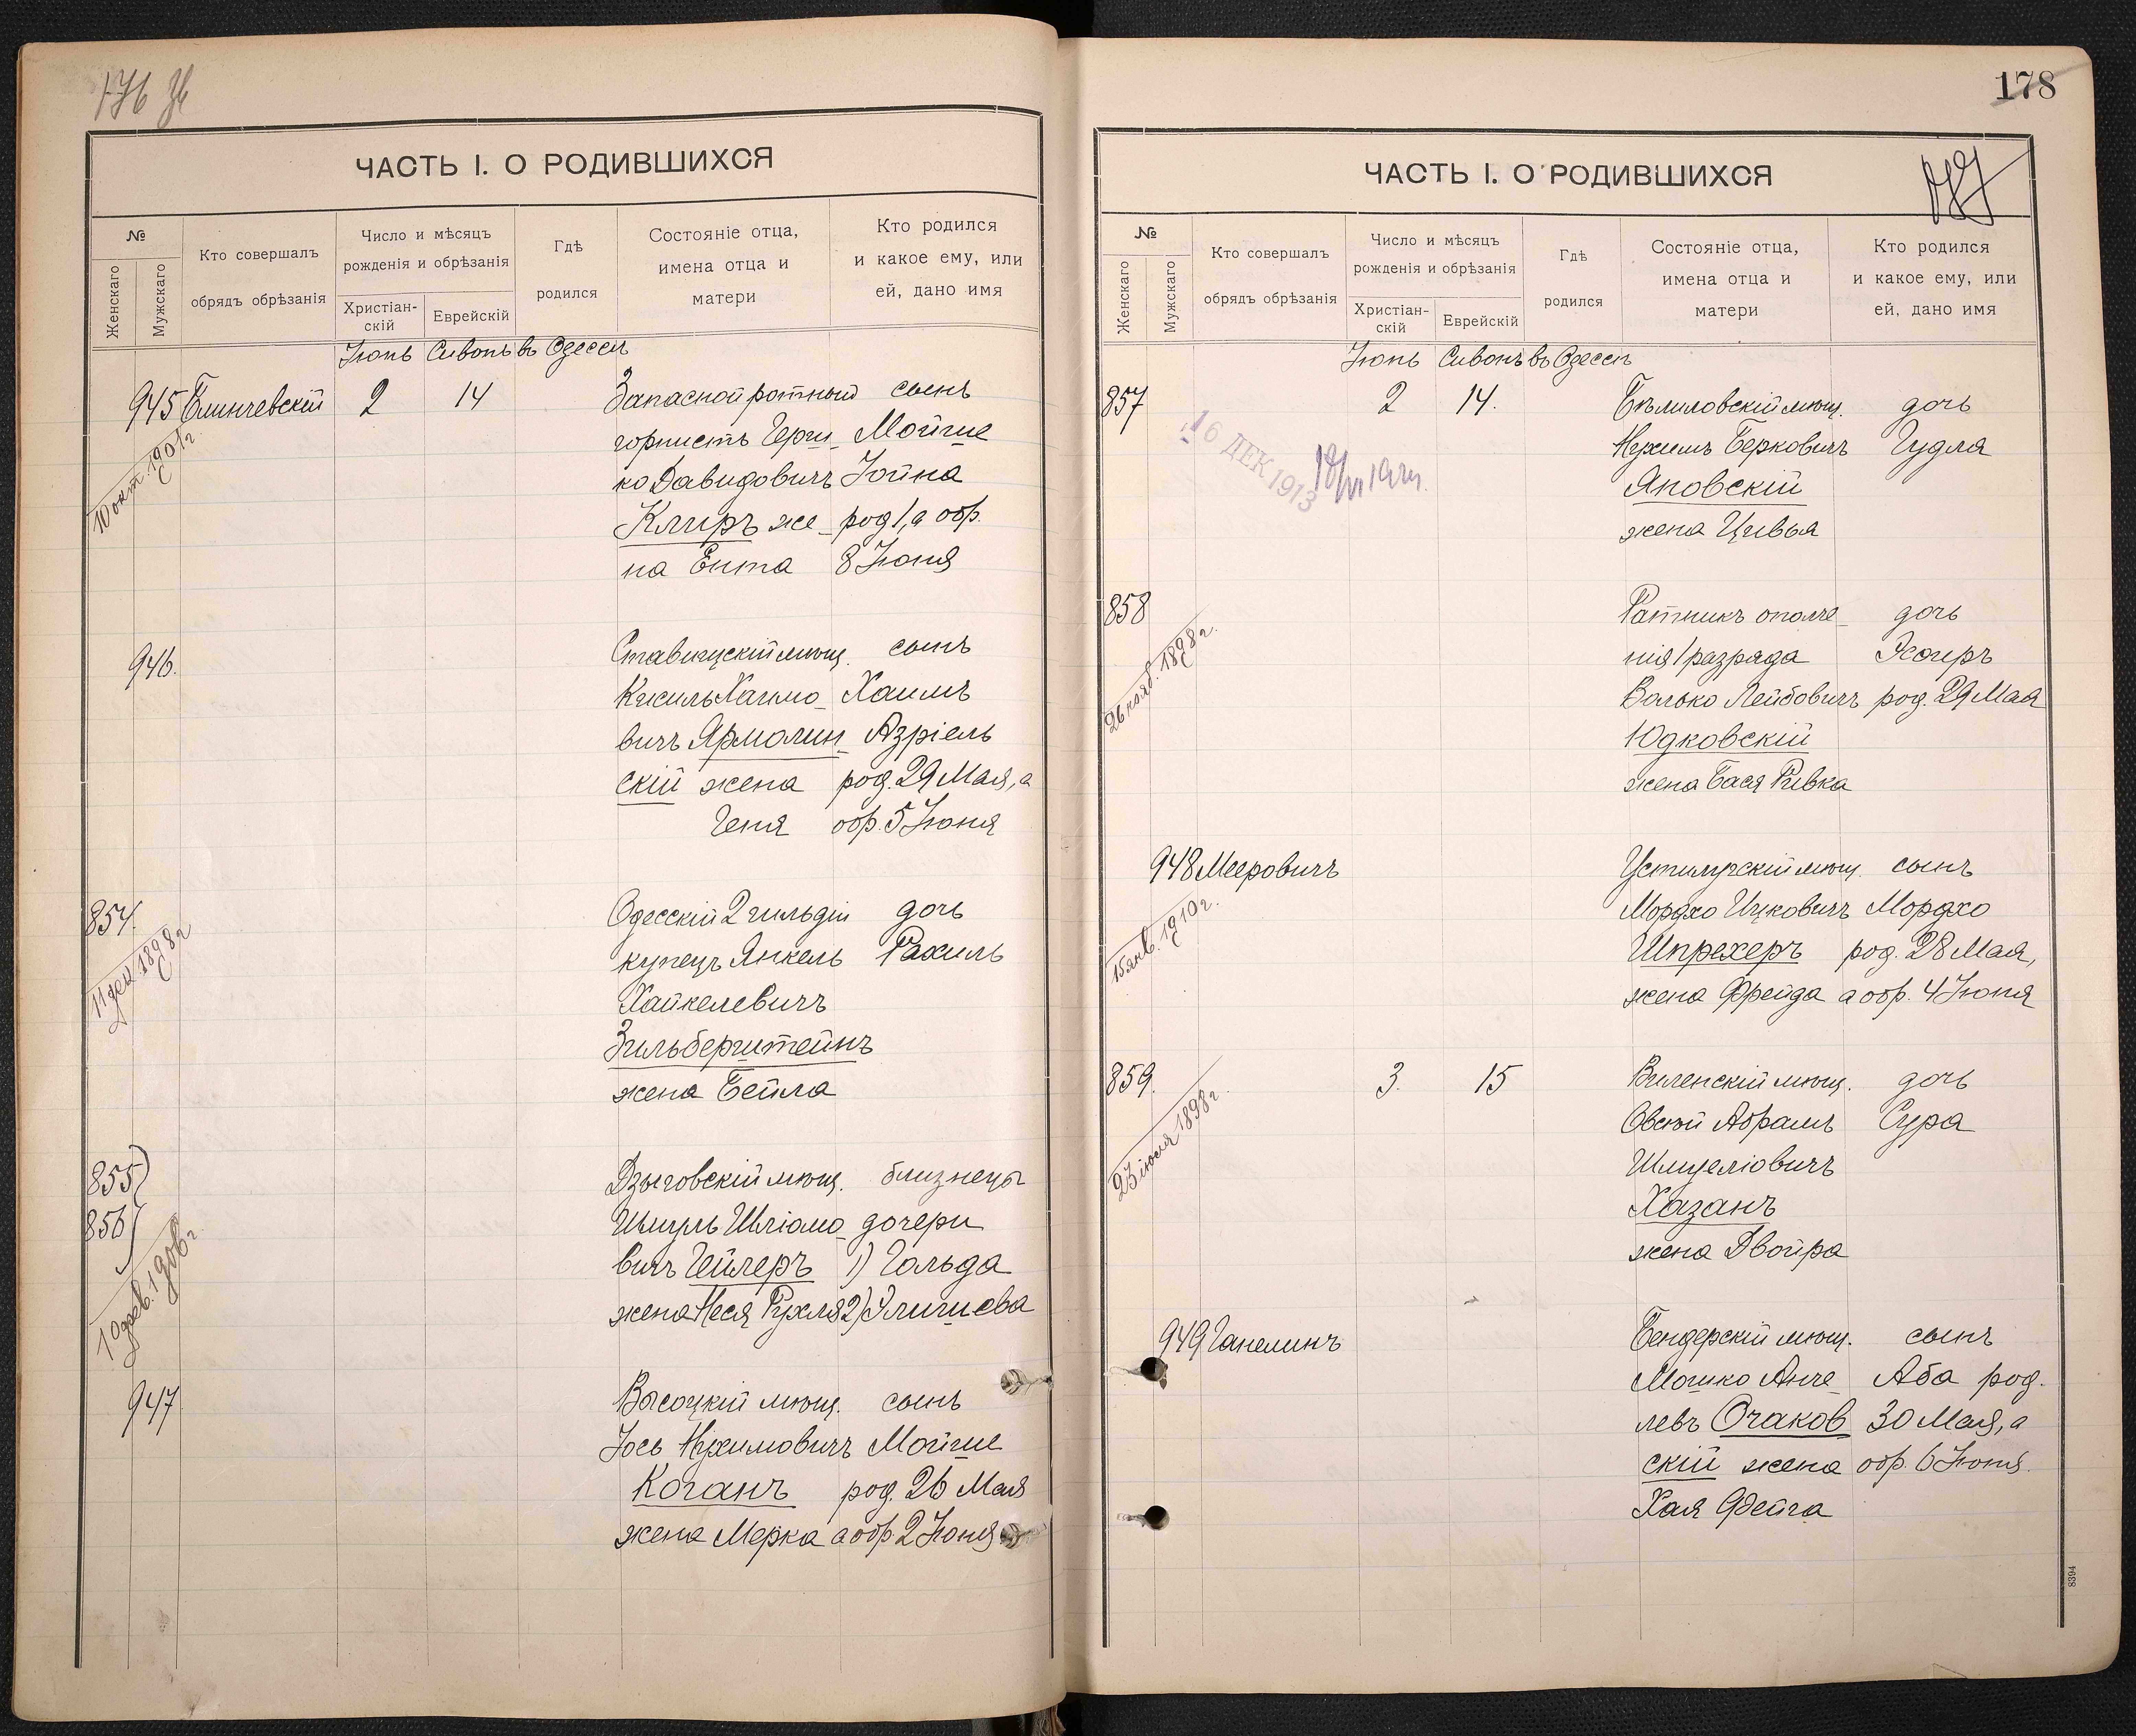 176
ЧАСТЬ I. О РОДИВШИХСЯ
№
Женскаго
Мужскаго
Кто совершалъ
обрядъ обрѣзанія
Число и мѣсяцъ
рожденія и обрѣзанія
Христіан-
скій
Еврейскій
Гдѣ
родился
Состояніе отца,
имена отца и
матери
Кто родился
и какое ему, или
ей, дано имя
Іюнь Сивонъ въ Одессѣ
945 Блинчевскій 2 14 Запасной ротный сынъ
10 окт. 1901 г.
горнистъ Герш- Мойше
ко Давидовичъ Іойна
Клиръ же- род 1, а обр.
на Ента 8 Іюня
946. Ставищскій мѣщ. сынъ
Кисиль Хаимо- Хаимъ
вичъ Ярмолин- Азріель
скій жена род. 29 Мая, а
Геня обр. 5 Іюня
854. Одесскій 2 гильдіи дочь
11 дек. 1898 г.
купецъ Янкель Рахиль
Хайкелевичъ
Зильберштейнъ
жена Бейла
855) Дзыговскій мѣщ. близнецы
856) Шмуль Шліомо- дочери
10 фев. 1906 г.
вичъ Гейлеръ 1) Гольда
жена Неся Рухля 2) Элишева
947 Высоцкій мѣщ. сынъ
Іось Нухимовичъ Мойше
Коганъ род. 26 Мая
жена Мерка а обр. 2 Іюня
178
ЧАСТЬ I. О РОДИВШИХСЯ
№
Женскаго
Мужскаго
Кто совершалъ
обрядъ обрѣзанія
Число и мѣсяцъ
рожденія и обрѣзанія
Христіан-
скій
Еврейскій
Гдѣ
родился
Состояніе отца,
имена отца и
матери
Кто родился
и какое ему, или
ей, дано имя
Іюнь Сивонъ въ Одессѣ
857 2 14. Бѣлиловскій мѣщ. дочь
16 ДЕК 1913
Нухимъ Берковичъ Гудля
Яновскій
жена Цивья
858 Ратникъ ополче- дочь
26 нояб. 1898 г.
нія 1 разряда Эсѳирь
Волько Лейбовичъ род. 29 Мая
Юдковскій
жена Бася Ривка
948 Мееровичъ Устимурскій мѣщ. сынъ
15 янв. 1910 г.
Мордхо Ицковичъ Мордхо
Шпрехеръ род. 28 Мая,
жена Фрейда а обр. 4 Іюня
859. 3. 15 Виленскій мѣщ. дочь
23 іюля 1898 г.
Овсей Абрамъ Сура
Шмуеліовичъ
Хазанъ
жена Двойра
949 Ганелинъ Бендерскій мѣщ. сынъ
Мошко Анче- Аба род.
левъ Очаков 30 Мая, а
скій жена обр. 6 Іюня.
Хая Фейга
8394